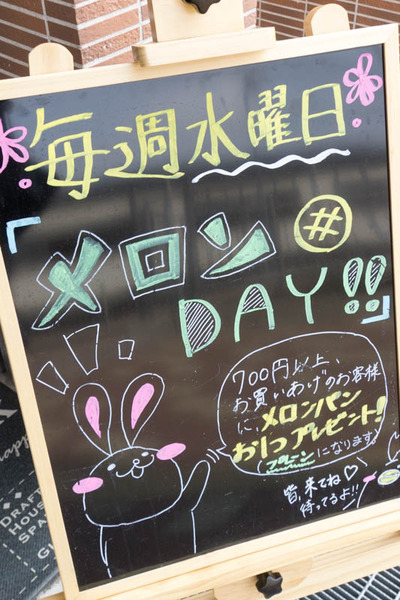 毎週水曜日
メロン
#
DAY!!
700円以上、
お買いあげのお客様
に、メロンパン
お1つプレゼント!
プレーンになります
皆、来てね♡
待ってるよ!!
DRAFT
HOUSE
SPA